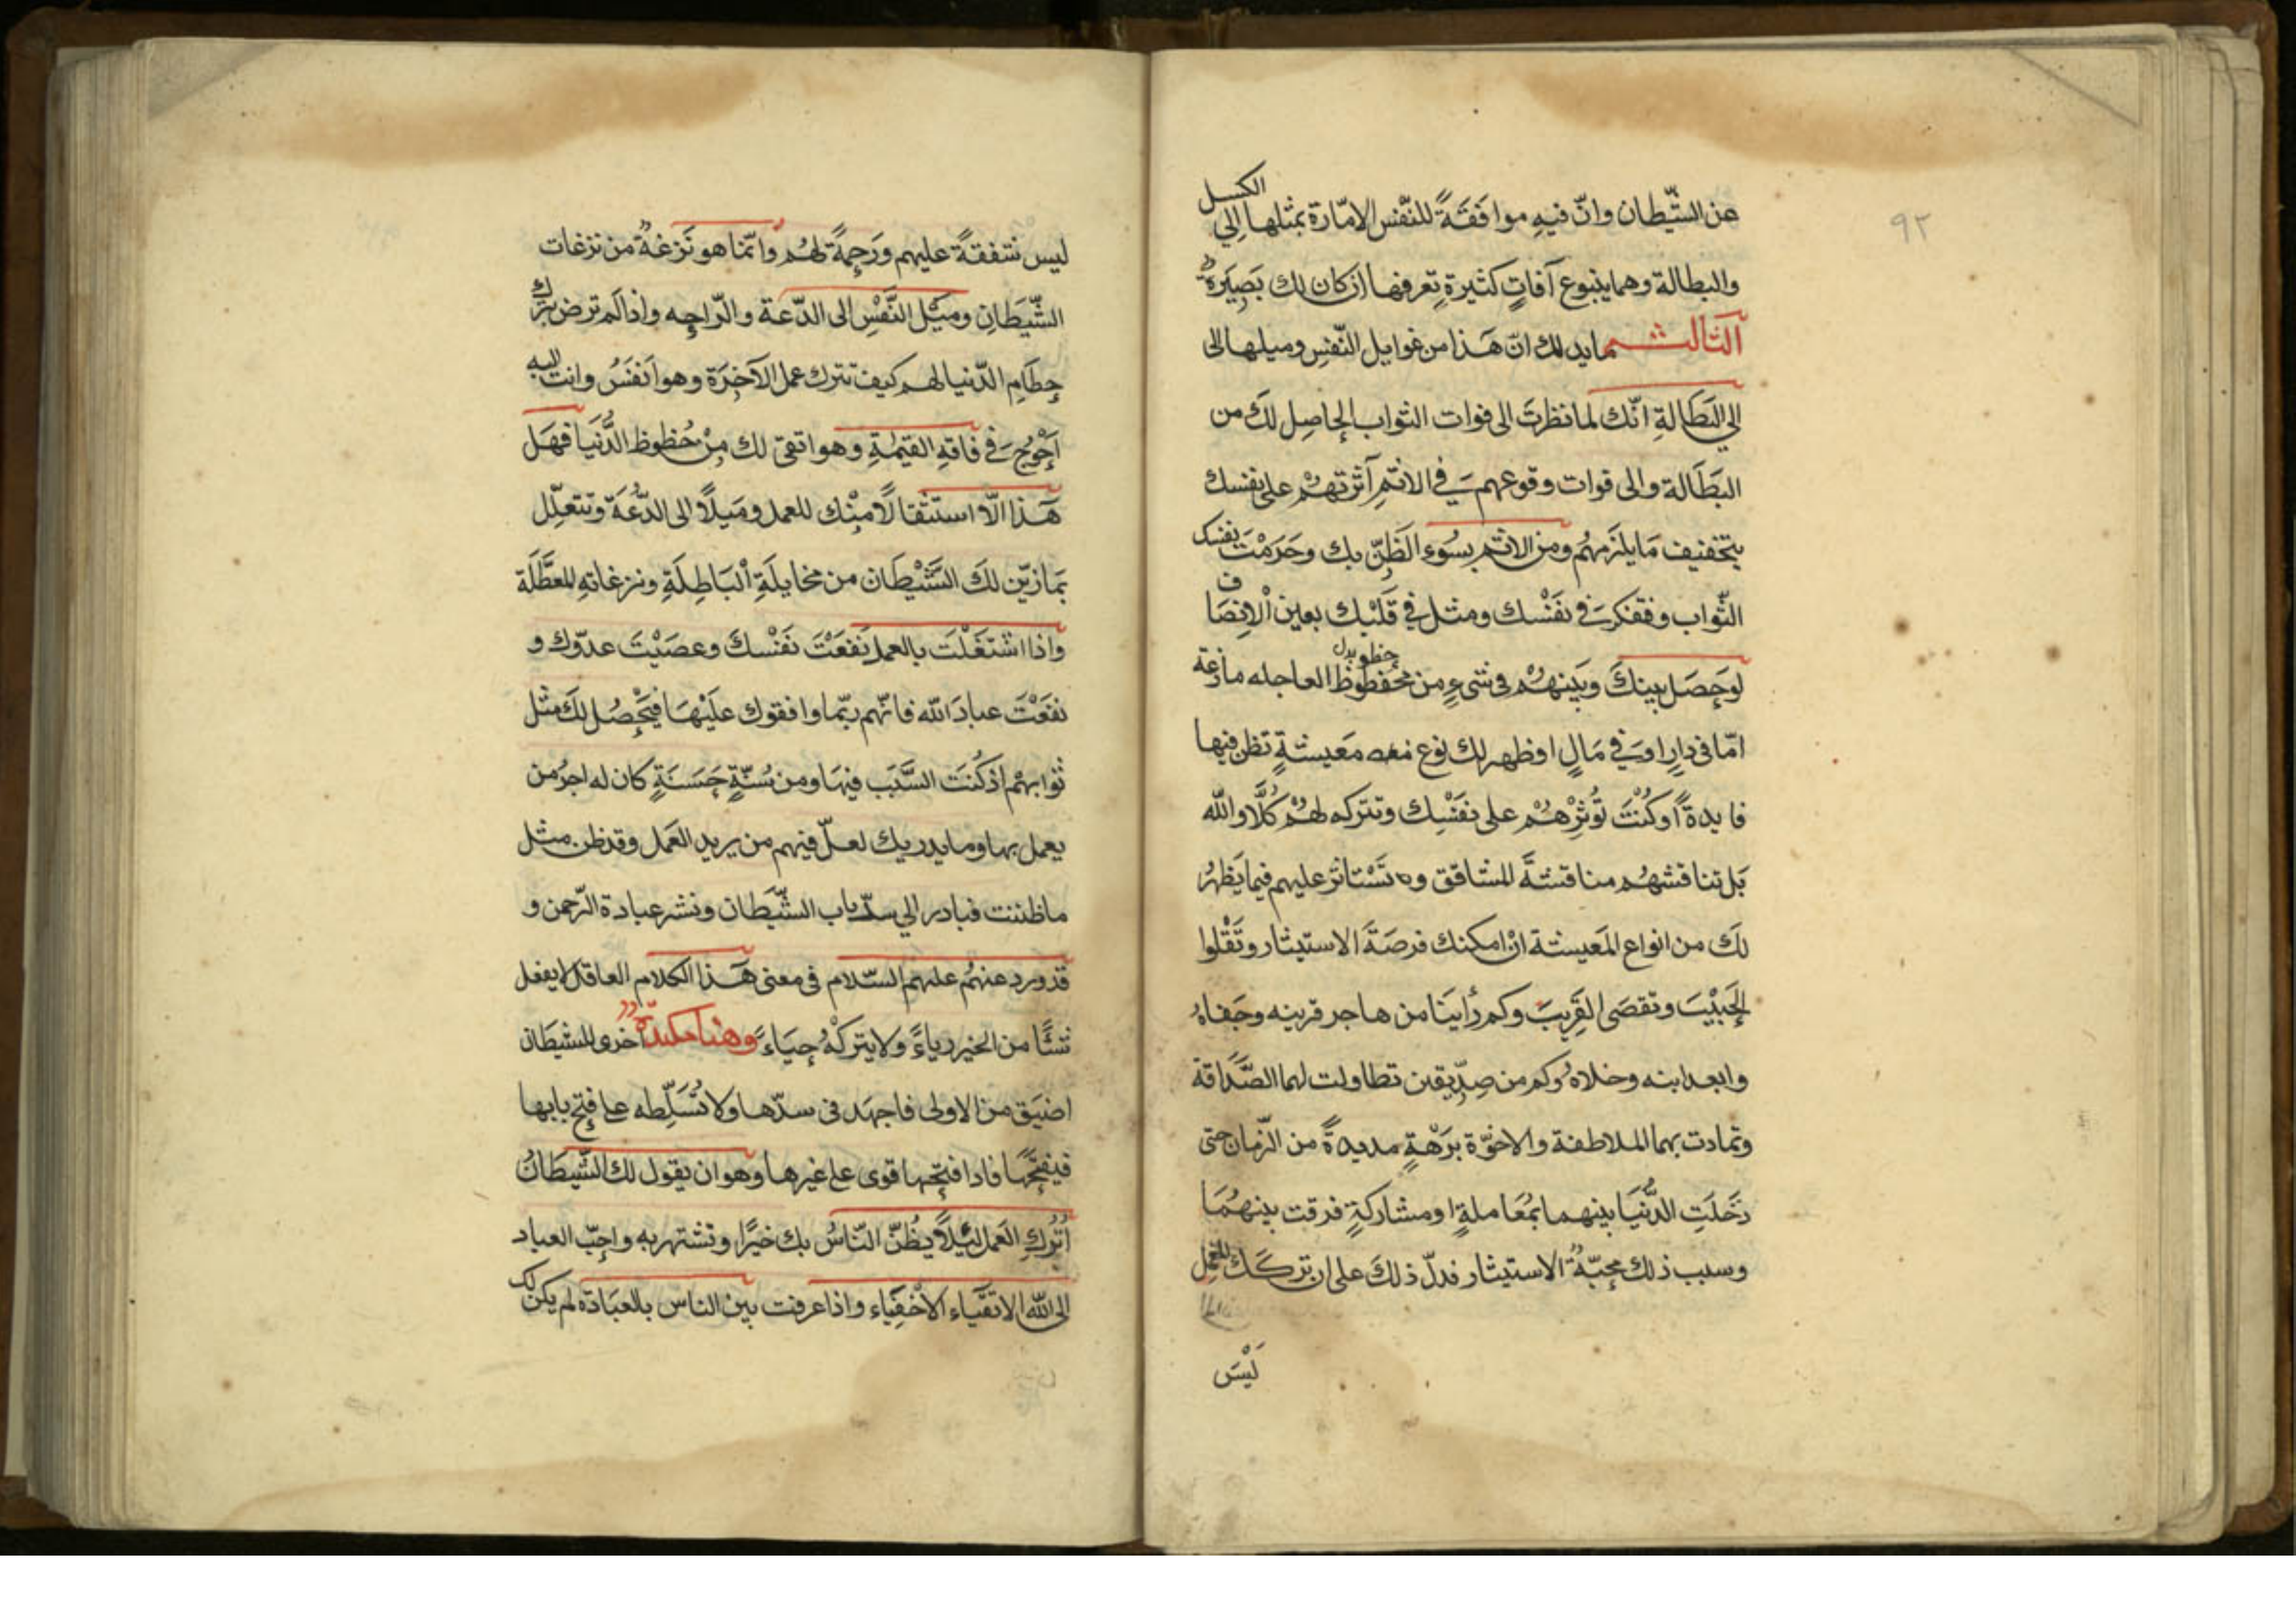 ٩٢
عن الشّيطان وانّ فيهِ موافَقَةً للنّفس الامّارة بمثلها اِلي الكسل
والبطالة وهما ينبوع آفاتٍ كثيرةٍ تعرفها اِن كان لك بَصِيَرةٌ
الثالث مما يدلك انّ هَذا من غوايل النّفسِ وميلها الى
اِلي البَطالةِ انّك لما نظرتَ الى فوات الثواب الحاصِل لكَ من
البَطَالة والى فوات وقوعهم في الاثمِ آثرتهُمْ على نفسك
بتخفيف مَا يلزمهُم ومن الاثمِ بسُوءِ الظَنّ بك وحَرَمْتَ نفسك
الثّواب وفتفكر في نفَسْك ومثل في قَلبْك بعين الْانِصَاف
لوحَصَل بينكَ وبَينهُمْ في شيءٍ من محفظوظ العاجله مازعة
حظو بدل
امّا في دارٍ او في مَالٍ اوظهر لك نوع معيشةٍ تظن فيها
فايدةً أوَكُنْتَ تُوثِرْهُمْ على نفَسْك وتتركه لهُمْ كَلَّا والله
بَل تناقشهُم مناقشةَ المشاقق وتَسْتاثر عليهم فيما يَظهرُ
لكَ من انواع المَعيشة انْ امكنك فرصَةَ الاستيثار وتَقْلوا
الحَبيْبَ وتقصَى القَريبَ وكم رأينَا من هاجر قرينه وجَفاهُ
وابعد ابنه وخلاهُ وكم من صِدّيقين تطاولت لهما الصَّدَاقة
وتمادت بهما الملاطفة والاخوّة برَهْةٍ مديدةً من الزّمان حتى
دَخَلَتِ الدُّنيَا بينهما بمُعَاملةٍ او مشاركةٍ فرقت بينهُمَا
وسبب ذلك محبّةُ الاستيثار فدلّ ذلكَ على ان تركَكَ للعَمل
لَيْسَ
ليس شفقةً عليهم ورَحِمةً لهُم وانّما هو نَزغةٌ من نزغات
الشّيَطانِ ومَيْل النَّفْسِ الى الدّعة والرّاحِه واذا لَم ترض بترك
حِطَامِ الدّنيا لهم كيف تترك عمل الآخِرَة وهو اَنفَسُ وانت اليه
اَحْوَجُ في فاقةِ القيمٰةِ وهو اتقى لك مِنْ حُظوظ الدُّنيَا فهَل
هَذا الّا استثقالًا مِنْك للعمل ومَيلًا الى الدّعَة وتتعلّل
بَما زيّن لكَ الشَّيْطَان من مخايلَةِ الْبَاطِلَةِ ونزغاتهِ المعطَّلَة
واذا اشتَغَلْتَ بالعمل نَفعَتَ نَفْسكَ وعصَيْتَ عدوّك و
نفعَتْ عبادَ الله فانّهم ربّما وافقوك عَليْهَا فيَحْصُل لكَ مثل
ثوابهمْ اذ كُنتَ السَّبَب فيهَا ومن سُنّةٍ حَسَنَةٍ كان له اجرُ من
يعمل بها وما يدريك لعلّ فيهم من يريد العَمل وقد ظن مثل
ما ظننت فبادر الي سدّ باب الشّيَطان ونشر عبادة الرّحمن و
قد ورد عنهُم عليهم السّلام في معنى هَذا الكلام العاقل لا يفعل
شئًا من الخير رياءً ولا يتركْهُ حِيَاءً وهنا مكيدةٌ اخرى للشيَطان
اضيَق من الاولى فاجهَد في سدّها ولا تُسَلِّطه على فتح بابها
فيفتحَها فاذا فتحَها قوى على غيرها وهو ان يقول لك الشّيطَانُ
اتْرُكِ العَمل لِئلّا يُظنّ النّاسُ بك خيرًا وتشتهر به واحبّ العباد
الى الله الاتقَياء الاخفِيَاء واذا عرفت بين الناس بالعبَادة لم يكن لك